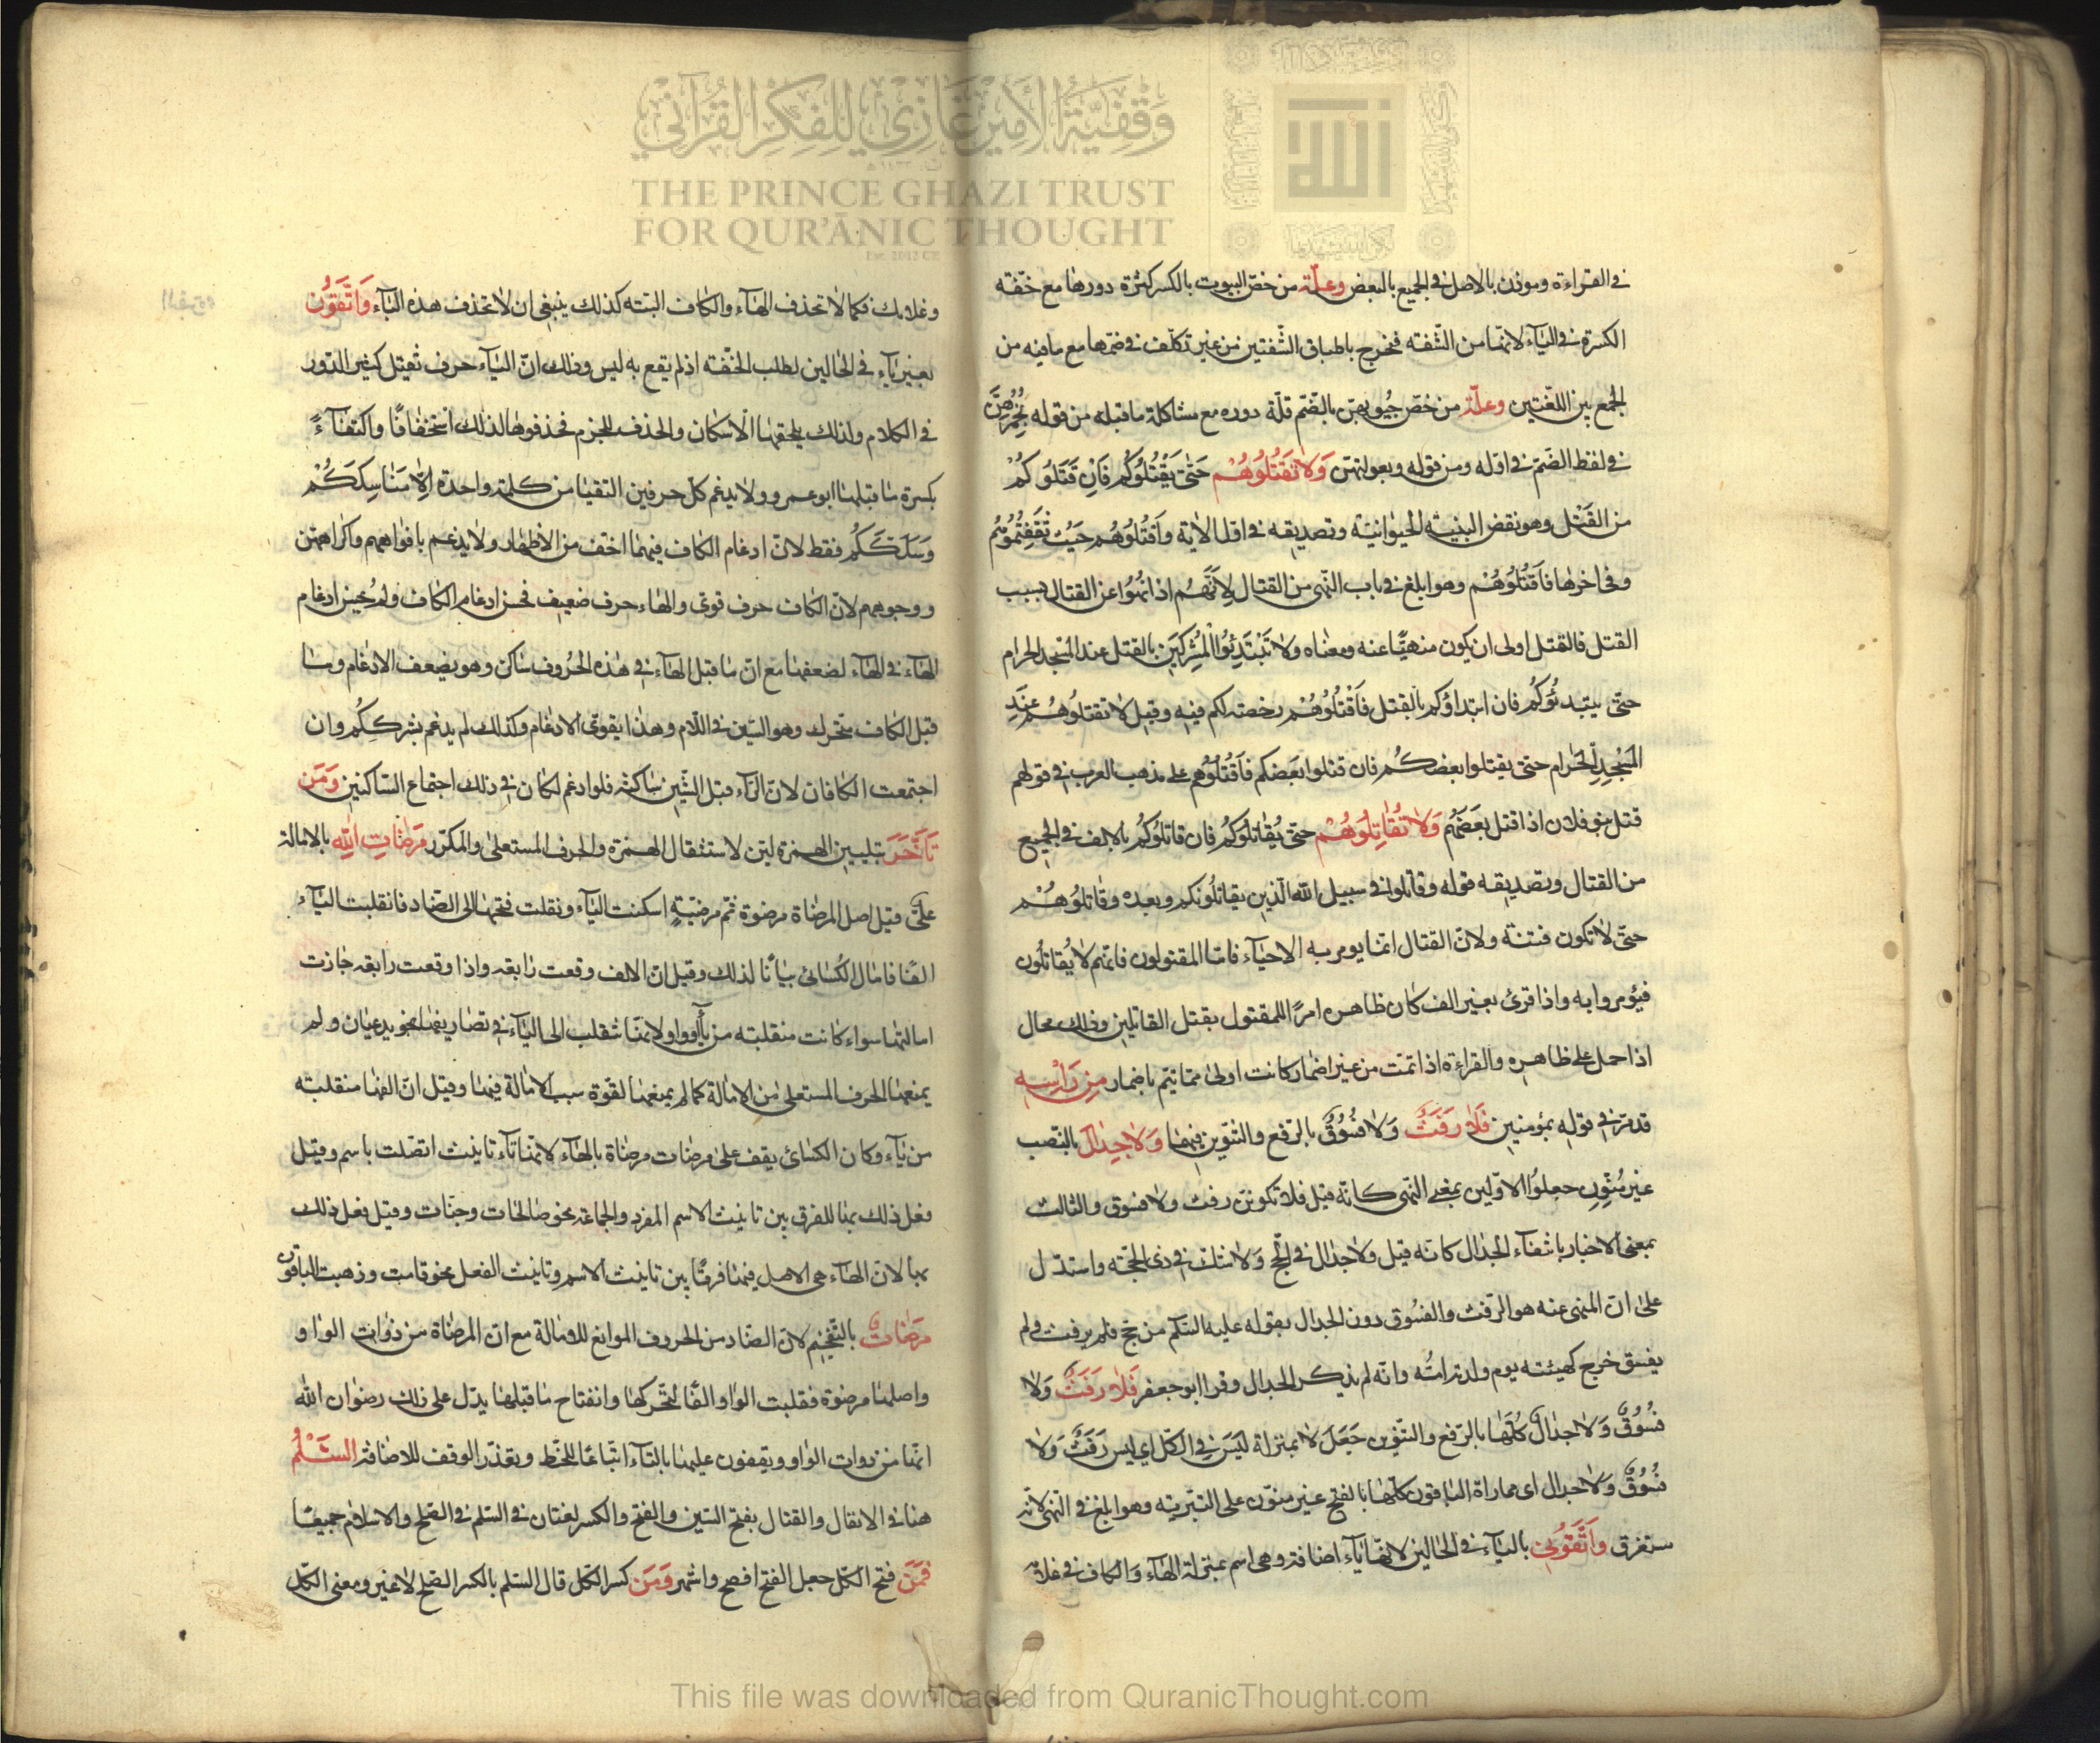 وقفية الأمير غازي للفكر القرآني
THE PRINCE GHAZI TRUST
FOR QUR'ĀNIC THOUGHT
في القراءة وموذن بالاصل في الجميع بالبعض وعلّة من خصّ البيوت بالكسر كثرة دورها مع خفّة
الكسرة في الياء لانها من الشّفته فتخرج باطباق الشّفتين من غير تكلّف في ضمّها مع ما فيه من
الجمع بين اللغتين وعلّة من خصّ جُيوبهنّ بالضّم قلّة دوره مع مشاكلة ما قبله من قوله بخُمُرِهِنَّ
في لفظ الضّمّ في اوّله ومن قوله وبعولتهنّ وَلَا تَقْتُلُوهُمْ حَتّى يَقْتُلُوكُم فَاِن قَتَلُوكُمْ
من القَتْل وهو نقض البنية الحيوانيّة وتصديقه في اول الاية وَاقْتُلُوهُم حَيْثُ ثَقِفْتُمُوهُم
وفي اخرها فَاقْتُلُوهُمْ وهو ابلغ في باب النّهى من القتال لِاَنَّهُم اذا نُهُوا عن القتال بسبب
القتل فالقتل اولى ان يكون منهيًّا عنه ومعناه ولا تَبْتَدِئُوا المُشْرِكِينَ بالقتل عند المسجد الحرام
حتّى يبتدئُوكُم فان ابتداؤكم بالقتل فَاقْتُلُوهُمْ رخصة لكم فيه وقيل لا تقتلُوهُم عِنْدَ
المَسْجِدِ الحَرام حتّى يقتلوا بعضكُم فان قتلوا بَعضكم فَاقْتُلُوهُم على مذهب العرب في قولهم
قتل بنو فلان اذا قتل بَعَضَهُم وَلَا تُقَاتِلُوهُمْ حتّى يُقاتلوكُم فان قاتلُوكُم بالالف في الجميع
من القتال وتصديقه قوله وقاتلوا في سبيل الله الّذين يقاتلُونكم وبعده وقاتلُوهُمْ
حتّى لا تكون فتنة ولانّ القتال انّما يومر به الاحيَاء فامّا المقتولون فانّهم لا يُقاتلُون
فيُؤمروا به واذا قرئ بغير الف كان ظاهره امرًا للمقتول بقتل القاتلين وذلك محال
اذا حمل على ظاهره والقراءة اذا تمّت من غير اضمار كانت اولى ممّا تتم باضمار مِن رَاْسِهِ
قد مرّ في قوله بمُؤمنين فَلَا رَفَثٌ وَلَا فُسُوقٌ بالرّفع والتنوين فيهما وَلَا جِدَالَ بالنّصب
غير مُنَوّنٍ جعلُوا الاوّلين بمعنى النّهى كانّه قيل فلا تكوننّ رفث ولا فسوق والثالث
بمعنى الاخبار بانتفاء الجدال كانّه قيل ولا جدال في الحجّ ولا شكّ في ذى الحجّة واستدلّ
على انّ المنهى عنه هو الرّفث والفسُوق دون الجدال بقوله عليه السّلم من حج فلم يرفث ولم
يفسق خرج كهيئته يوم ولدته امّه وانّه لم يذكر الجدال وقرا ابو جعفر فَلَا رَفَثٌ وَلا
فُسُوقٌ وَلا جدالٌ كُلّها بالرّفع والتّنوين جَعَلَ لا بمنزلة لَيْسَ في الكلّ اى ليس رَفَثٌ وَلَا
فُسُوقٌ وَلا جدال اى مماراة الباقون كلّها بالفتح غير منوّن على التّبرية وهو ابلغ في النّهى لانّه
ستغرق وَاتَّقُونِي بالياء في الحالين لانّها ياء اضافة وهى اسم بمنزلة الهاء والكاف في غلامه
وغلامك فكما لا تحذف الهاء والكاف البتّه كذلك ينبغى ان لا تحذف هذه الياء وَاتَّقُونِ
بغير ياء في الحالين لطلب الخفّة اذ لم يقع به لبس وذلك انّ الياء حرف ثقيل كثير الدّور
في الكلام ولذلك يلحقها الاسكان والحذف للجزم فحذفوها لذلك استخفافًا واكتفاءً
بكسرة ما قبلها ابو عمرو ولا يدغم كل حرفين التقيا من كلمة واحدة اِلّا مَناسِكَكُمْ
وَسَلَكَكُم فقط لانّ ادغام الكاف فيهما اخف من الاظهار ولا يدغم بافواههم واكراههنّ
ووجوههم لانّ الكاف حرف قوى والهاء حرف ضعيف فحسن ادغام الكاف ولم يحسن ادغام
الهاء في الهاء لضعفها مع انّ ما قبل الهاء في هذه الحُروف ساكن وهو يضعف الادغام وما
قبل الكاف متحرك وهو السّين في اللّام وهذا يقوّى الادغام وكذلك لم يدغم بشركِكُم وان
اجتمعت الكافان لانّ الرّاء قبل الشّين سَاكنة فلو ادغم لكان في ذلك اجتماع السّاكنين وَمَن
تَاَخَّرَ بتليين الهمزة ليّن لاستثقال الهمزة والحرف المستعلى والمكرّر مَرْضَاتِ اللهِ بالامالة
علىٌّ وقيل اصل المرضاة مرضوة ثم مرضيَة اسكنت الياء ونقلت فتحها الى الضاد فانقلبت الياء
الفًا فامال الكسائى بيانًا لذلك وقيل انّ الالف وقعت رابعة واذا وقعت رابعة جازت
امالتها سواء كانت منقلبة من ياء او واو لانها تنقلب الى الياء في تصاريفها نحو يدعيان ولم
يمنعها الحرف المستعلى من الامالة كما لم يمنعها لقوّة سبب الامالة فيها وقيل انّ الفها منقلبة
من ياء وكان الكسائى يقف على مرضات مرضاة بالهاء لانّها تاء تانيث اتصلت باسم وقيل
فعل ذلك بها للفرق بين تانيث الاسم المفرد والجماعة نحو صالحات وجنّات وقيل فعل ذلك
بها لانّ الهاء هى الاصل فيها فرقًا بين تانيث الاسم وتانيث الفعل نحو قامت وذهبت الباقون
مَرْضَاتَ بالتّفخيم لانّ الضّاد من الحروف الموانع للامالة مع انّ المرضاة من ذوات الواو
واصلها مرضوة فقلبت الواو الفًا لتحّركها وانفتاح ما قبلها يدّل على ذلك رضوان الله
انّها من ذوات الواو ويقفون عليها بالتاء اتّباعًا للخّط وتعذّر الوقف للاضافة السَّلْمُ
هنا في الانفال والقتال بفتح السّين والفتح والكسر لغتان في السّلم في الصّلح والاسلام جميعًا
فَمَن فتح الكلّ جعل الفتح افصح واشهر وَمَن كسر الكلّ قال السّلم بالكسر الصّلح لا غير ومعنى الكلّ
This file was downloaded from QuranicThought.com